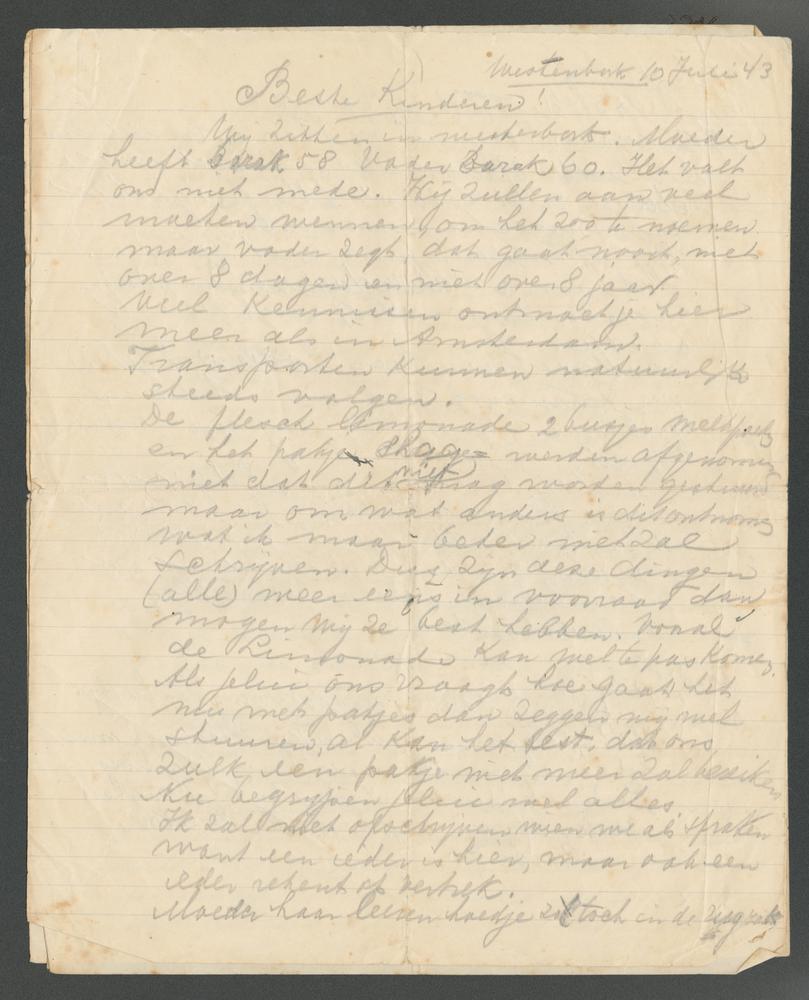 Westenbork 10 Juli 43
Beste Kinderen!
Wij zitten in westerbork. Moeder
heeft Barak 58 Vader Barak 60. Het valt
ons niet mede. Wij zullen aan veel
moeten wennen, om het zoo te noemen
maar vader zegt, dat gaat nooit, niet
over 8 dagen en niet over 8 jaar
Veel Kennissen ontmoet je hier
meer als in Amsterdam.
Transporten kunnen natuurlijk
steeds volgen.
De flesch limonade 2 busjes melkpoeder
en het pakje Shagge werden afgenomen
niet dat dit niet mag worden gestuurd
maar om wat anders is dit ontnomen
wat ik maar beter niet zal
schrijven. Dus zijn deze dingen
(alle) weer eens in voorraad dan
mogen wij ze best hebben. Vooral
de Limonade kan wel te pas komen.
Als jelui ons vraagt hoe gaat het
nu met pakjes dan zeggen wij wel
stuuren, al kan het best, dat ons
zulk een pakje niet meer zal bereiken
Nu begrijpen jelui wel alles
Ik zal niet opschrijven wien we al spraken
want een ieder is hier, maar ook een
ieder rekent op vertrek.
Moeder haar leeren hoedje zat toch in de